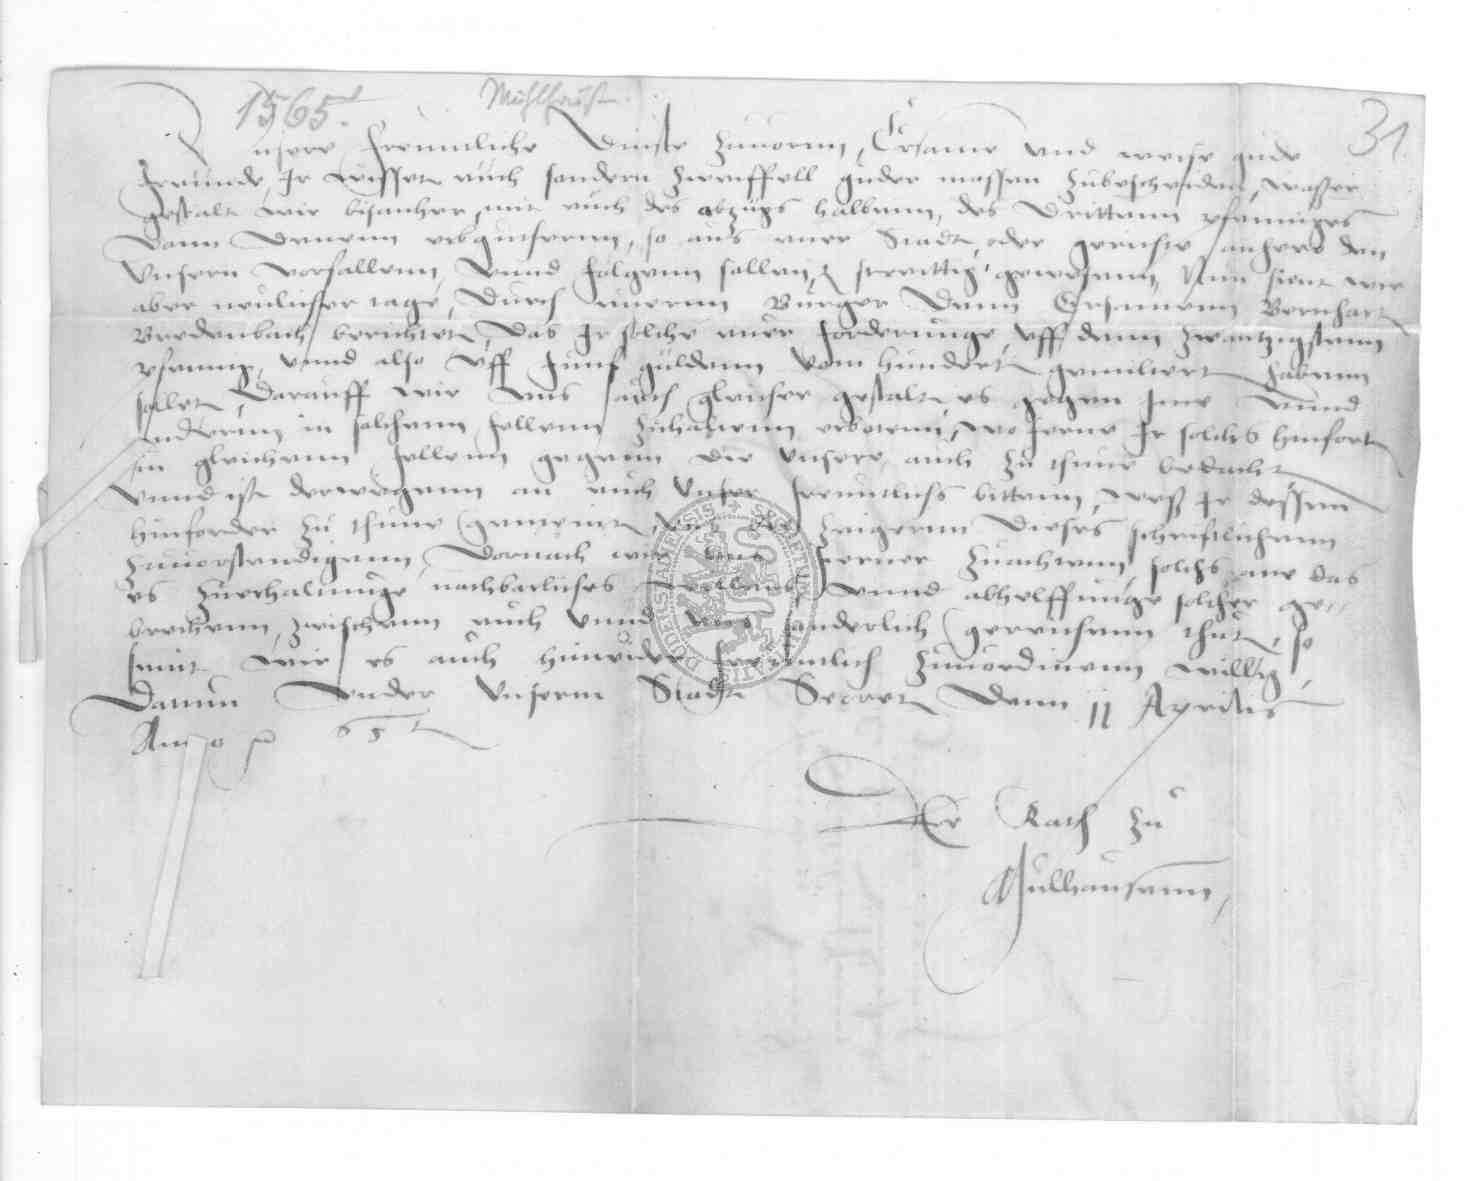 1565. Mühlhaus. 31
Unsere freuntliche Dinste zuuornn, Ersame und weise gude
freunde, Ir wisset euch sondern zweiffell guder massen zubescheiden, wasser
gestalt wir bisanher, mit euch des abzugs halbenn, des Drittenn pfenniges
vonn denenn erbguthernn, so aus euer Stadt, oder gerichte anhero den
Unsern vorfallenn, unnd folgenn sollen, streittig gewesenn, Nun sient wir
aber neulicher tage, durch euernn Burger denn Ersamenn Bernhart
Bredenbach berichtet, das Ir solche euer forderunge, uff denn zwantzigstenn
pfennig, unnd also uff funf guldenn vom hundert gemiltert habenn
sollet, Darauff wir uns auch gleicher gestalt es gegen Ime unnd
anderenn in solchenn fellenn zuhaltenn erbotenn, wo ferne Ir solchs hinfort
in gleichenn fellenn gegenn die unsere auch zu thune bedacht
Unnd ist derwegenn an euch unser freuntlichs bittenn, weß Ir dessenn
hinforder zu thune gemeint, uns bei zeigerun dieses schriftlichenn
zuuorstendigenn, Darnach wir uns ferner zuachtenn, solchs ane das
es zuerhaltunge nachbarliches willens unnd abhelffunge solcher ge-
brechenn, zwischenn euch unnd uns sonderlich gereichenn thut, so
seint wir es auch hinwider freuntlich zuuordinenn willig,
Datum under unserm Stadt Secret denn 11 Aprilis
Anno 65t
Der Rath zu
Mulhausenn,
SIGILLUM SECRETUM CIVITATIS DUDERSTADENSIS